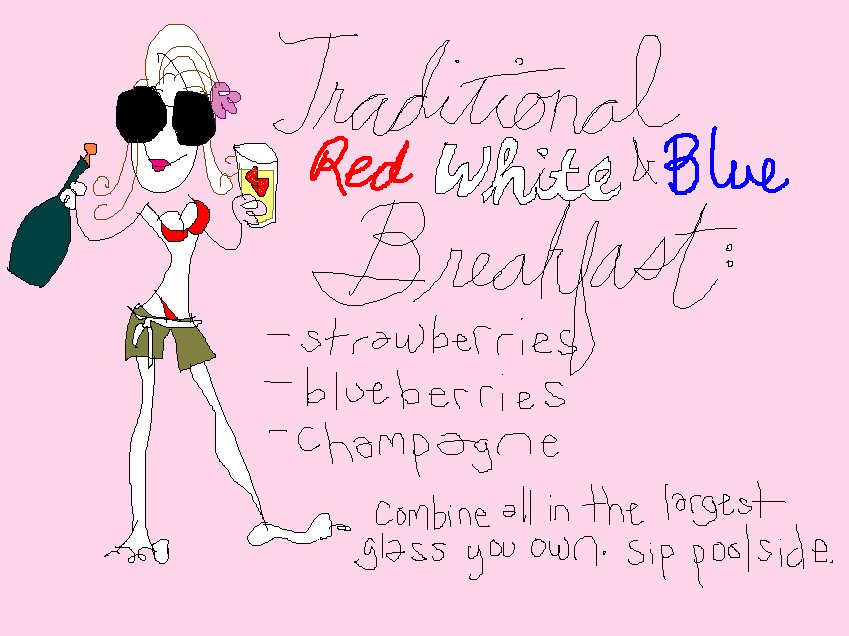 Traditional
Red White & Blue
Breakfast:
- strawberries
- blueberries
- champagne
combine all in the largest
glass you own. sip poolside.